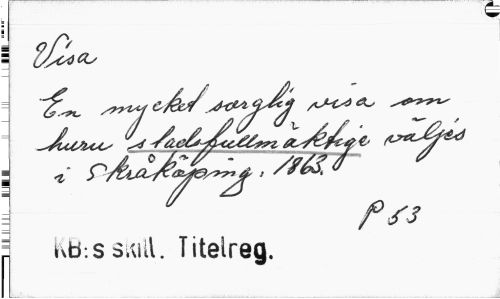 Visa
En mycket sorglig visa om
huru stadsfullmäktige väljes
i Skråköping. 1863.
P 53
KB:s skill. Titelreg.